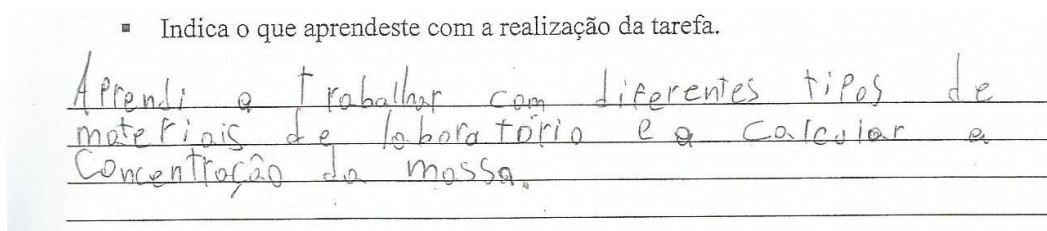 ▪ Indica o que aprendeste com a realização da tarefa.
Aprendi a trabalhar com diferentes tipos de
materiais de laboratório e a calcular a
concentração da massa.